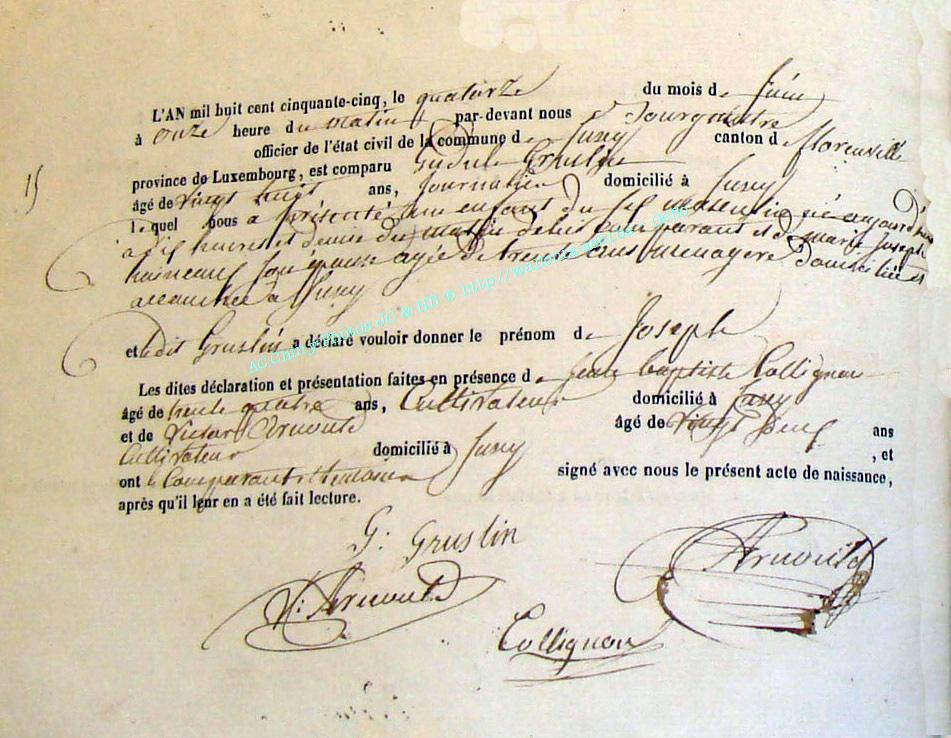 L'AN mil huit cent cinquante-cinq, le quatorze du mois de Juin
à onze heure du matin par-devant nous Bourgmestre
officier de l'état civil de la commune de Suxy canton de Florenville
province de Luxembourg, est comparu Gudule Gruslin
âgé de vingt huit ans, Journalier domicilié à Suxy
lequel nous a présenté un enfant du sexe masculin né aujourd'hui
à dix heures et demie du matin de lui comparant et de marie Joseph
son épouse agée de trente ans menagere domiciliée et
accouchée à Suxy
15
et ledit Gruslin a déclaré vouloir donner le prénom de Joseph
Les dites déclaration et présentation faites en présence de Jean baptiste Collignon
âgé de trente quatre ans, Cultivateur domicilié à Suxy
et de Victor Arnould âgé de vingt neuf ans
Cultivateur domicilié à Suxy , et
ont le Comparant et temoins signé avec nous le présent acte de naissance,
après qu'il leur en a été fait lecture.
G: Gruslin
V: Arnould
Arnould
Collignon